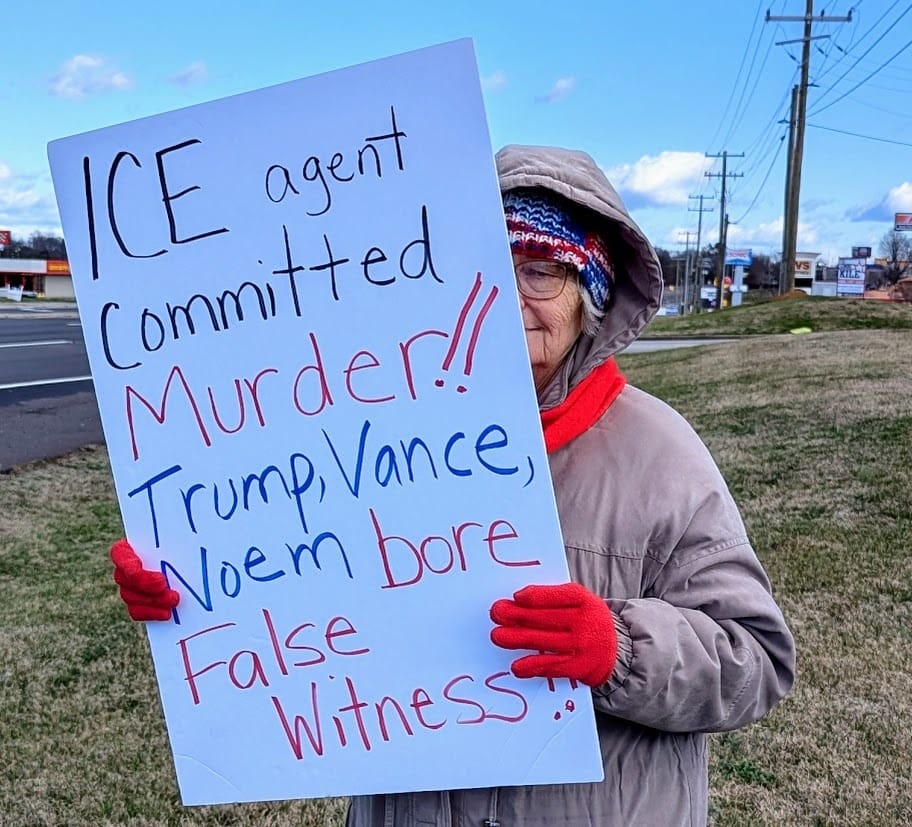 ICE agent
Committed
Murder!!
Trump, Vance,
Noem bore
False
Witness!!
KILL